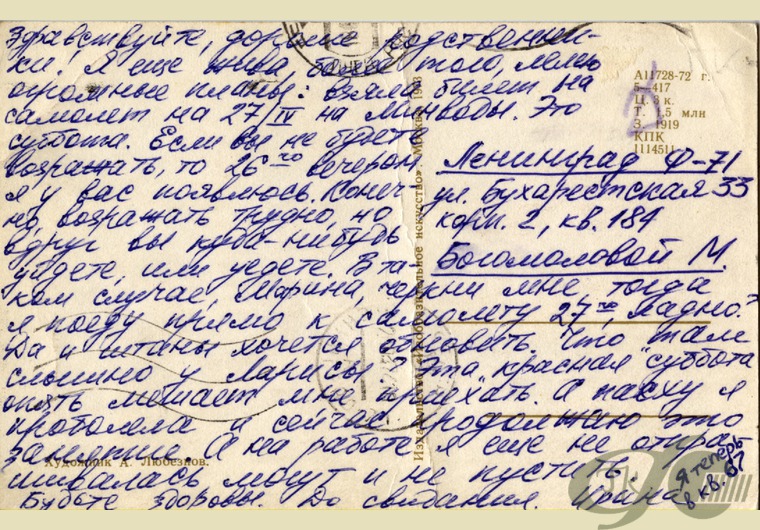 Здравствуйте, дорогие родственни-
ки. Я еще жива более того, лелею
огромные планы: взяла билет на
самолет на 27/IV на Минводы. Это
суббота. Если вы не будете
возражать, то 26го вечером
я у вас появлюсь. Конеч-
но, возражать трудно, но
вдруг вы куда-нибудь
уйдете, или уедете. В та-
ком случае, Марина, черкни мне, тогда
я поеду прямо к самолету 27го, ладно?
Да и штаны хочется обновить. Что там
слышно у Ларисы? Эта "красная" суббота
опять мешает мне приехать. А пасху я
проболела и сейчас продолжаю это
занятие. А на работе я еще не отпра-
шивалась могут и не пустить.
Будьте здоровы. До свидания. Ирина
Я теперь
в кв. 67
А11728-72 г.
5-417
Ц. 3 к.
Т. 1,5 млн
З. 1919
КПК
1114511
Ленинград Ф-71
ул. Бухарестская 33
корп. 2, кв. 184
Богомоловой М.
Издательство «Изобразительное искусство». Москва.
Художник А. Любезнов.